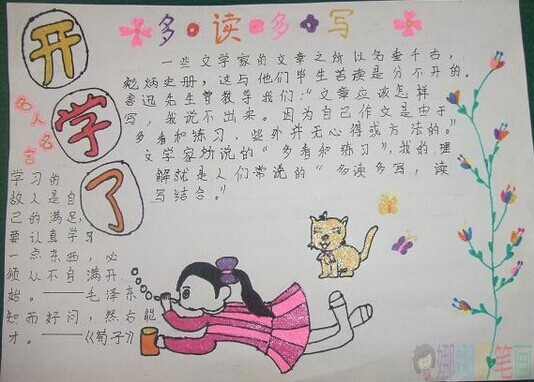 开
学
了
多读多写
名人名言
一些文学家的文章之所以名垂千古,
彪炳史册,这与他们毕生苦读是分不开的。
鲁迅先生曾教导我们:“文章应该怎样
写,我说不出来。因为自己作文是由于
多看和练习,此外并无心得或方法的。”
文学家所说的“多看和练习”,我的理
解就是人们常说的“多读多写,读
写结合。”
学习的
敌人是自
己的满足,
要认真学习
一点东西,必
须从不自满开
始。——毛泽东
知而好问,然后能
才。——《荀子》